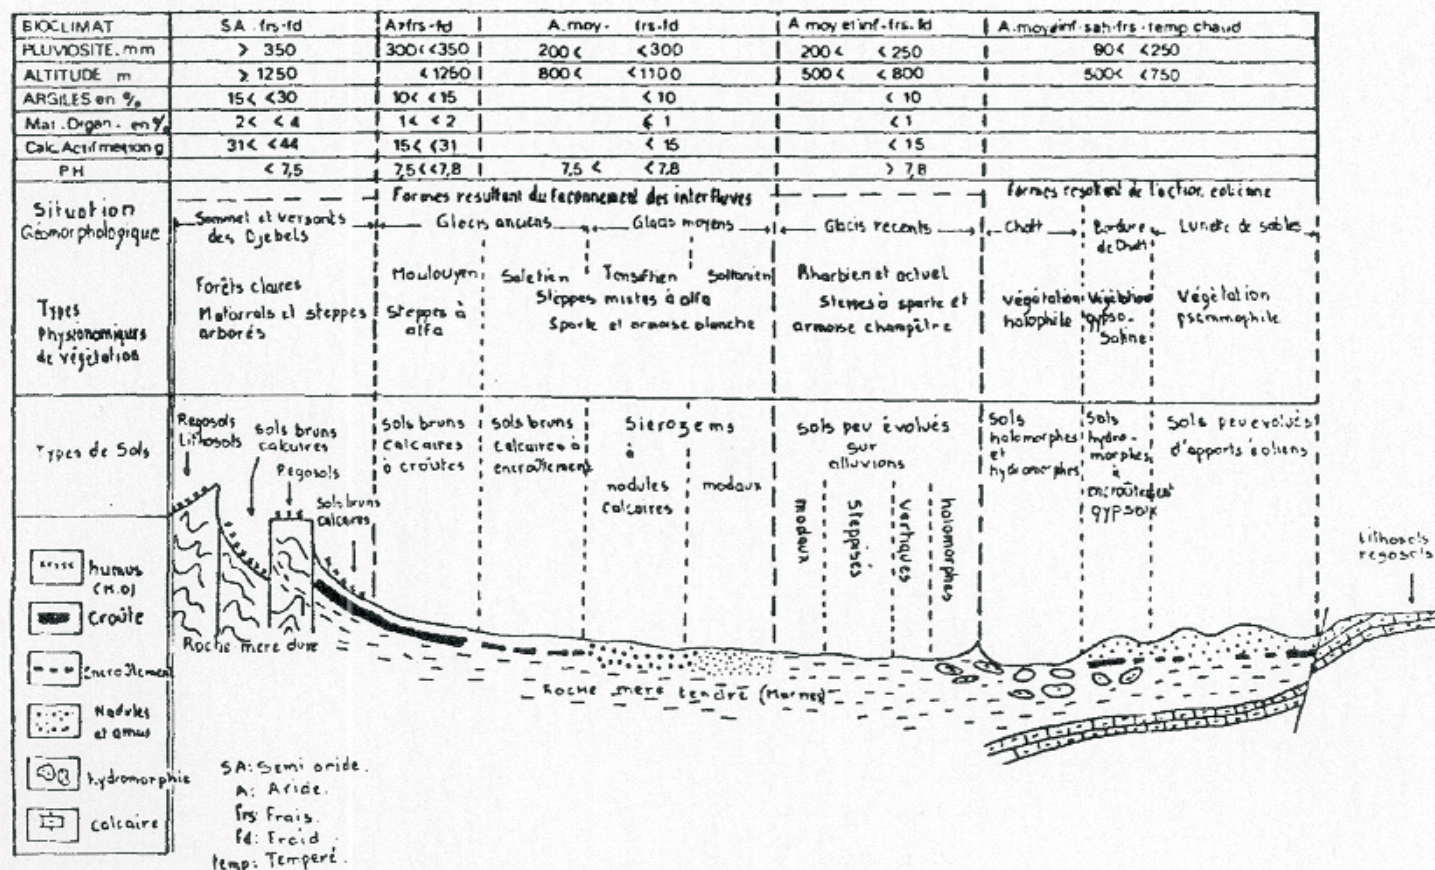 BIOCLIMAT SA . frs-fd A>frs-fd A.moy. frs-fd A moy et inf-frs.fd A.moy inf-sah-frs-temp chaud
PLUVIOSITE.mm > 350 300< <350 200< <300 200< < 250 90< <250
ALTITUDE m > 1250 < 1250 800< <1100 500< < 800 500< <750
ARGILES en % 15< <30 10< <15 < 10 < 10
Mat.Organ. en % 2< < 4 1< < 2 < 1 < 1
Calc.Actif 31< <44 15< <31 < 15 < 15
PH < 7,5 7,5<<7,8 7,5 < < 7,8 > 7,8
Formes resultant du façonnement des interfluves
Formes resultant de l'action eolienne
Situation Géomorphologique
Sommet et versants des Djebels
Glacis anciens
Glacis moyens
Glacis recents
Chott
Bordure de Chott
Lunette de sables
Types Physionomiques de végétation
Forêts claires
Matorrals et steppes arborés
Moulouyen
Steppes à alfa
Saletien
Tensiftien
Soltanien
Steppes mixtes à alfa
Sparte et armoise blanche
Rharbien et actuel
Steppes à sparte et armoise champêtre
végétation halophile
Végétation gypso-Saline
Végétation psammophile
Types de Sols
Regosols
Lithosols
Sols bruns calcaires
Regosols
Sols bruns calcaires
Sols bruns calcaires à croûtes
Sols bruns calcaires à encroûtement
Sierozems
à
nodules calcaires
modaux
Sols peu évolués
sur
alluvions
modaux
Steppisés
Vertiques
halomorphes
Sols halomorphes et hydromorphes
Sols hydro-morphes à encroûtement gypseux
Sols peu evolués d'apports éoliens
Lithosols
regosols
Roche mere dure
Roche mere tendre (Marnes)
humus (M.O)
Croûte
Encroûtement
Nodules et amas
hydromorphie
calcaire
SA: Semi aride.
A: Aride.
frs: Frais.
Fd: Froid
temp: Temperé.